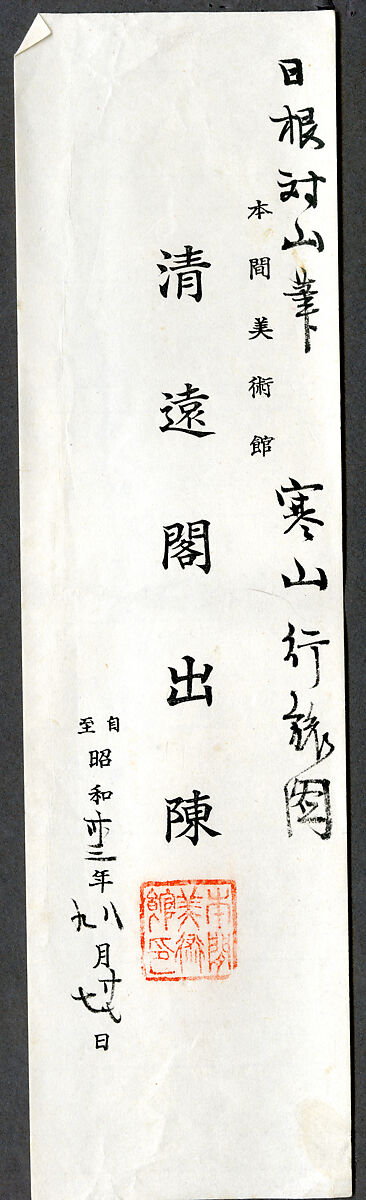 日根対山筆 寒山行旅図
本間美術館
清遠閣出陳
本間美術館印
自至昭和卅三年八九月廿七日